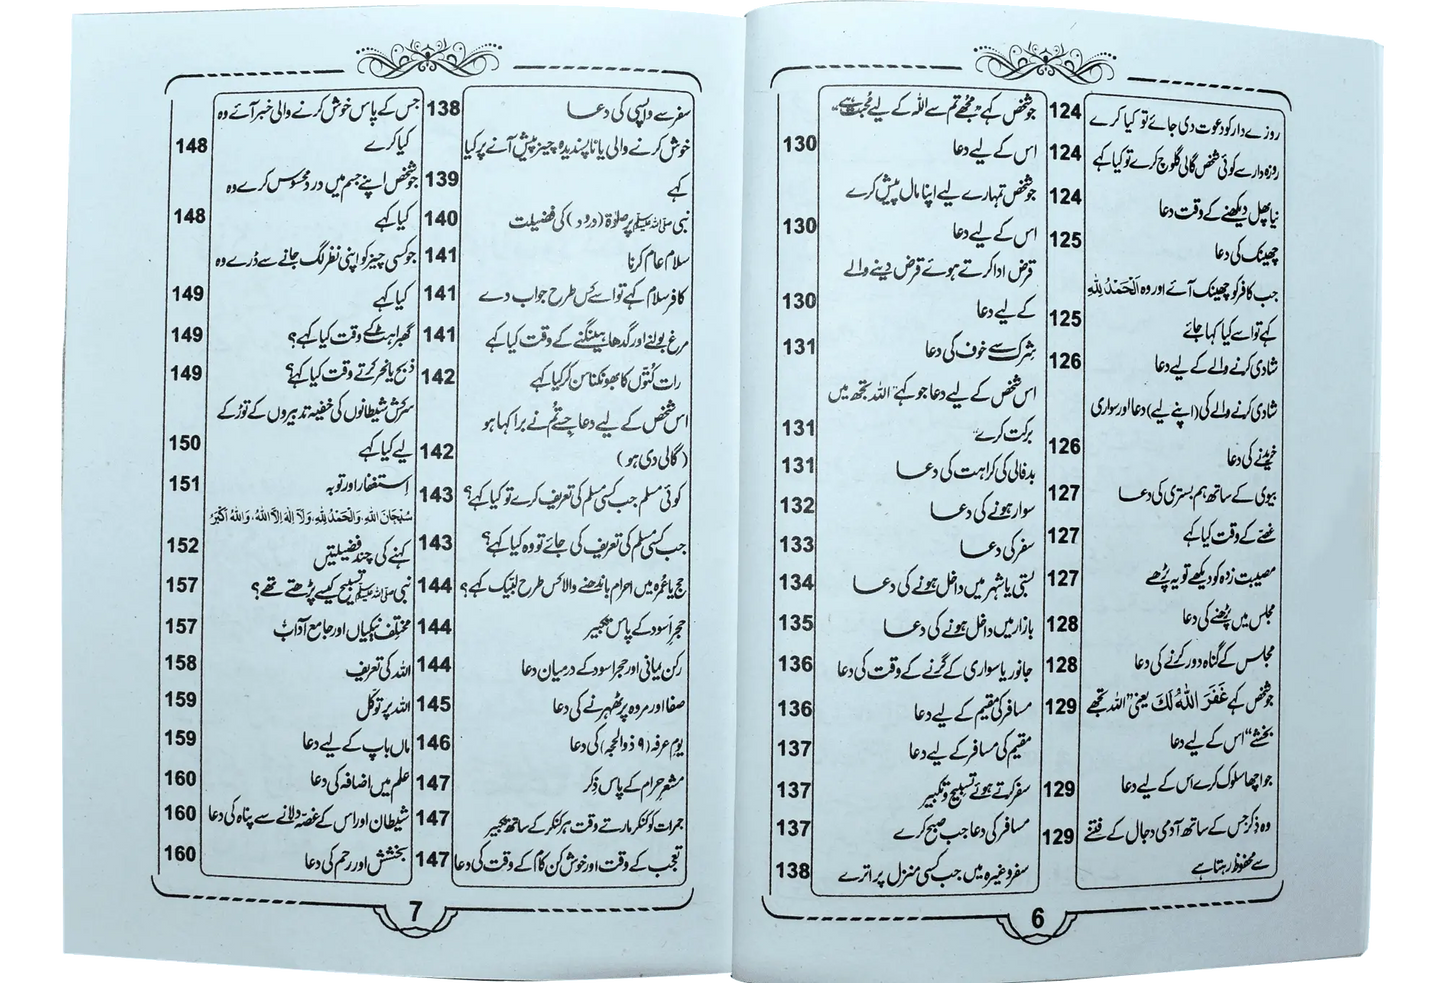 روزے دار کو دعوت دی جائے تو کیا کرے 124
روزہ دار سے کوئی شخص گالی گلوچ کرے تو کیا کہے 124
نیا پھل دیکھنے کے وقت دعا 124
چھینک کی دعا 125
جب کافر کو چھینک آئے اور وہ اَلْحَمْدُ لِلّٰهِ
کہے تو اسے کیا کہا جائے 125
شادی کرنے والے کے لیے دعا 126
شادی کرنے والے کی (اپنے لیے) دعا اور سواری
خریدنے کی دعا 126
بیوی کے ساتھ ہم بستری کی دعا 127
غصّے کے وقت کیا کہے 127
مصیبت زدہ کو دیکھے تو یہ پڑھے 127
مجلس میں پڑھنے کی دعا 128
مجلس کے گناہ دور کرنے کی دعا 128
جو شخص کہے غَفَرَ اللّٰهُ لَكَ یعنی "اللہ تجھے 129
بخشے" اس کے لیے دعا
جو اچھا سلوک کرے اس کے لیے دعا 129
وہ ذکر جس کے ساتھ آدمی دجال کے فتنے 129
سے محفوظ رہتا ہے
جو شخص کہے "مجھے تم سے اللہ کے لیے محبت ہے"
اس کے لیے دعا 130
جو شخص تمہارے لیے اپنا مال پیش کرے
اس کے لیے دعا 130
قرض ادا کرتے ہوئے قرض دینے والے
کے لیے دعا 130
شرک سے خوف کی دعا 131
اس شخص کے لیے دعا جو کہے "اللہ تجھ میں
برکت کرے" 131
بدفالی کی کراہت کی دعا 131
سوار ہونے کی دعا 132
سفر کی دعا 133
بستی یا شہر میں داخل ہونے کی دعا 134
بازار میں داخل ہونے کی دعا 135
جانور یا سواری کے گرنے کے وقت کی دعا 136
مسافر کی مقیم کے لیے دعا 136
مقیم کی مسافر کے لیے دعا 137
سفر کرتے ہوئے تسبیح و تکبیر 137
مسافر کی دعا جب صبح کرے 137
سفر وغیرہ میں جب کسی منزل پر اترے 138
6
سفر سے واپسی کی دعا 138
خوش کرنے والی یا ناپسندیدہ چیز پیش آنے پر کیا
کہے 139
نبی ﷺ پر صلوٰۃ (درود) کی فضیلت 140
سلام عام کرنا 141
کافر سلام کہے تو اسے کس طرح جواب دے 141
مرغ بولنے اور گدھا ہینگنے کے وقت کیا کہے 141
رات کُتّوں کا بھونکنا سن کر کیا کہے 142
اس شخص کے لیے دعا جسے تم نے برا کہا ہو
(گالی دی ہو) 142
کوئی مسلم جب کسی مسلم کی تعریف کرے تو کیا کہے؟ 143
جب کسی مسلم کی تعریف کی جائے تو وہ کیا کہے؟ 143
حج یا عمرہ میں احرام باندھنے والا کس طرح لبّیک کہے؟ 144
حجرِ اسود کے پاس تکبیر 144
رکن یمانی اور حجر اسود کے درمیان دعا 144
صفا اور مروہ پر ٹھہرنے کی دعا 145
یومِ عرفہ (۹ ذوالحجہ) کی دعا 146
مشعرِ حرام کے پاس ذِکر 147
جمرات کو کنکر مارتے وقت ہر کنکر کے ساتھ تکبیر 147
تعجب کے وقت اور خوش کن کام کے وقت کی دعا 147
جس کے پاس خوش کرنے والی خبر آئے وہ
کیا کرے 148
جو شخص اپنے جسم میں درد محسوس کرے وہ
کیا کہے 148
جو کسی چیز کو اپنی نظر لگ جانے سے ڈرے وہ
کیا کہے 149
گھبراہٹ کے وقت کیا کہے؟ 149
ذبح یا نحر کرتے وقت کیا کہے؟ 149
سرکش شیطانوں کی خفیہ تدبیروں کے توڑ کے
لیے کیا کہے 150
اِستغفار اور توبہ 151
سُبْحَانَ اللّٰهِ، وَالْحَمْدُ لِلّٰهِ، وَلَا اِلٰهَ اِلَّا اللّٰهُ، وَاللّٰهُ اَكْبَرُ
کہنے کی چند فضیلتیں 152
نبی ﷺ تسبیح کیسے پڑھتے تھے؟ 157
مختلف نیکیاں اور جامع آداب 157
اللہ کی تعریف 158
اللہ پر توکّل 159
ماں باپ کے لیے دعا 159
علم میں اضافہ کی دعا 160
شیطان اور اس کے غصّہ دلانے سے پناہ کی دعا 160
بخشش اور رحم کی دعا 160
7